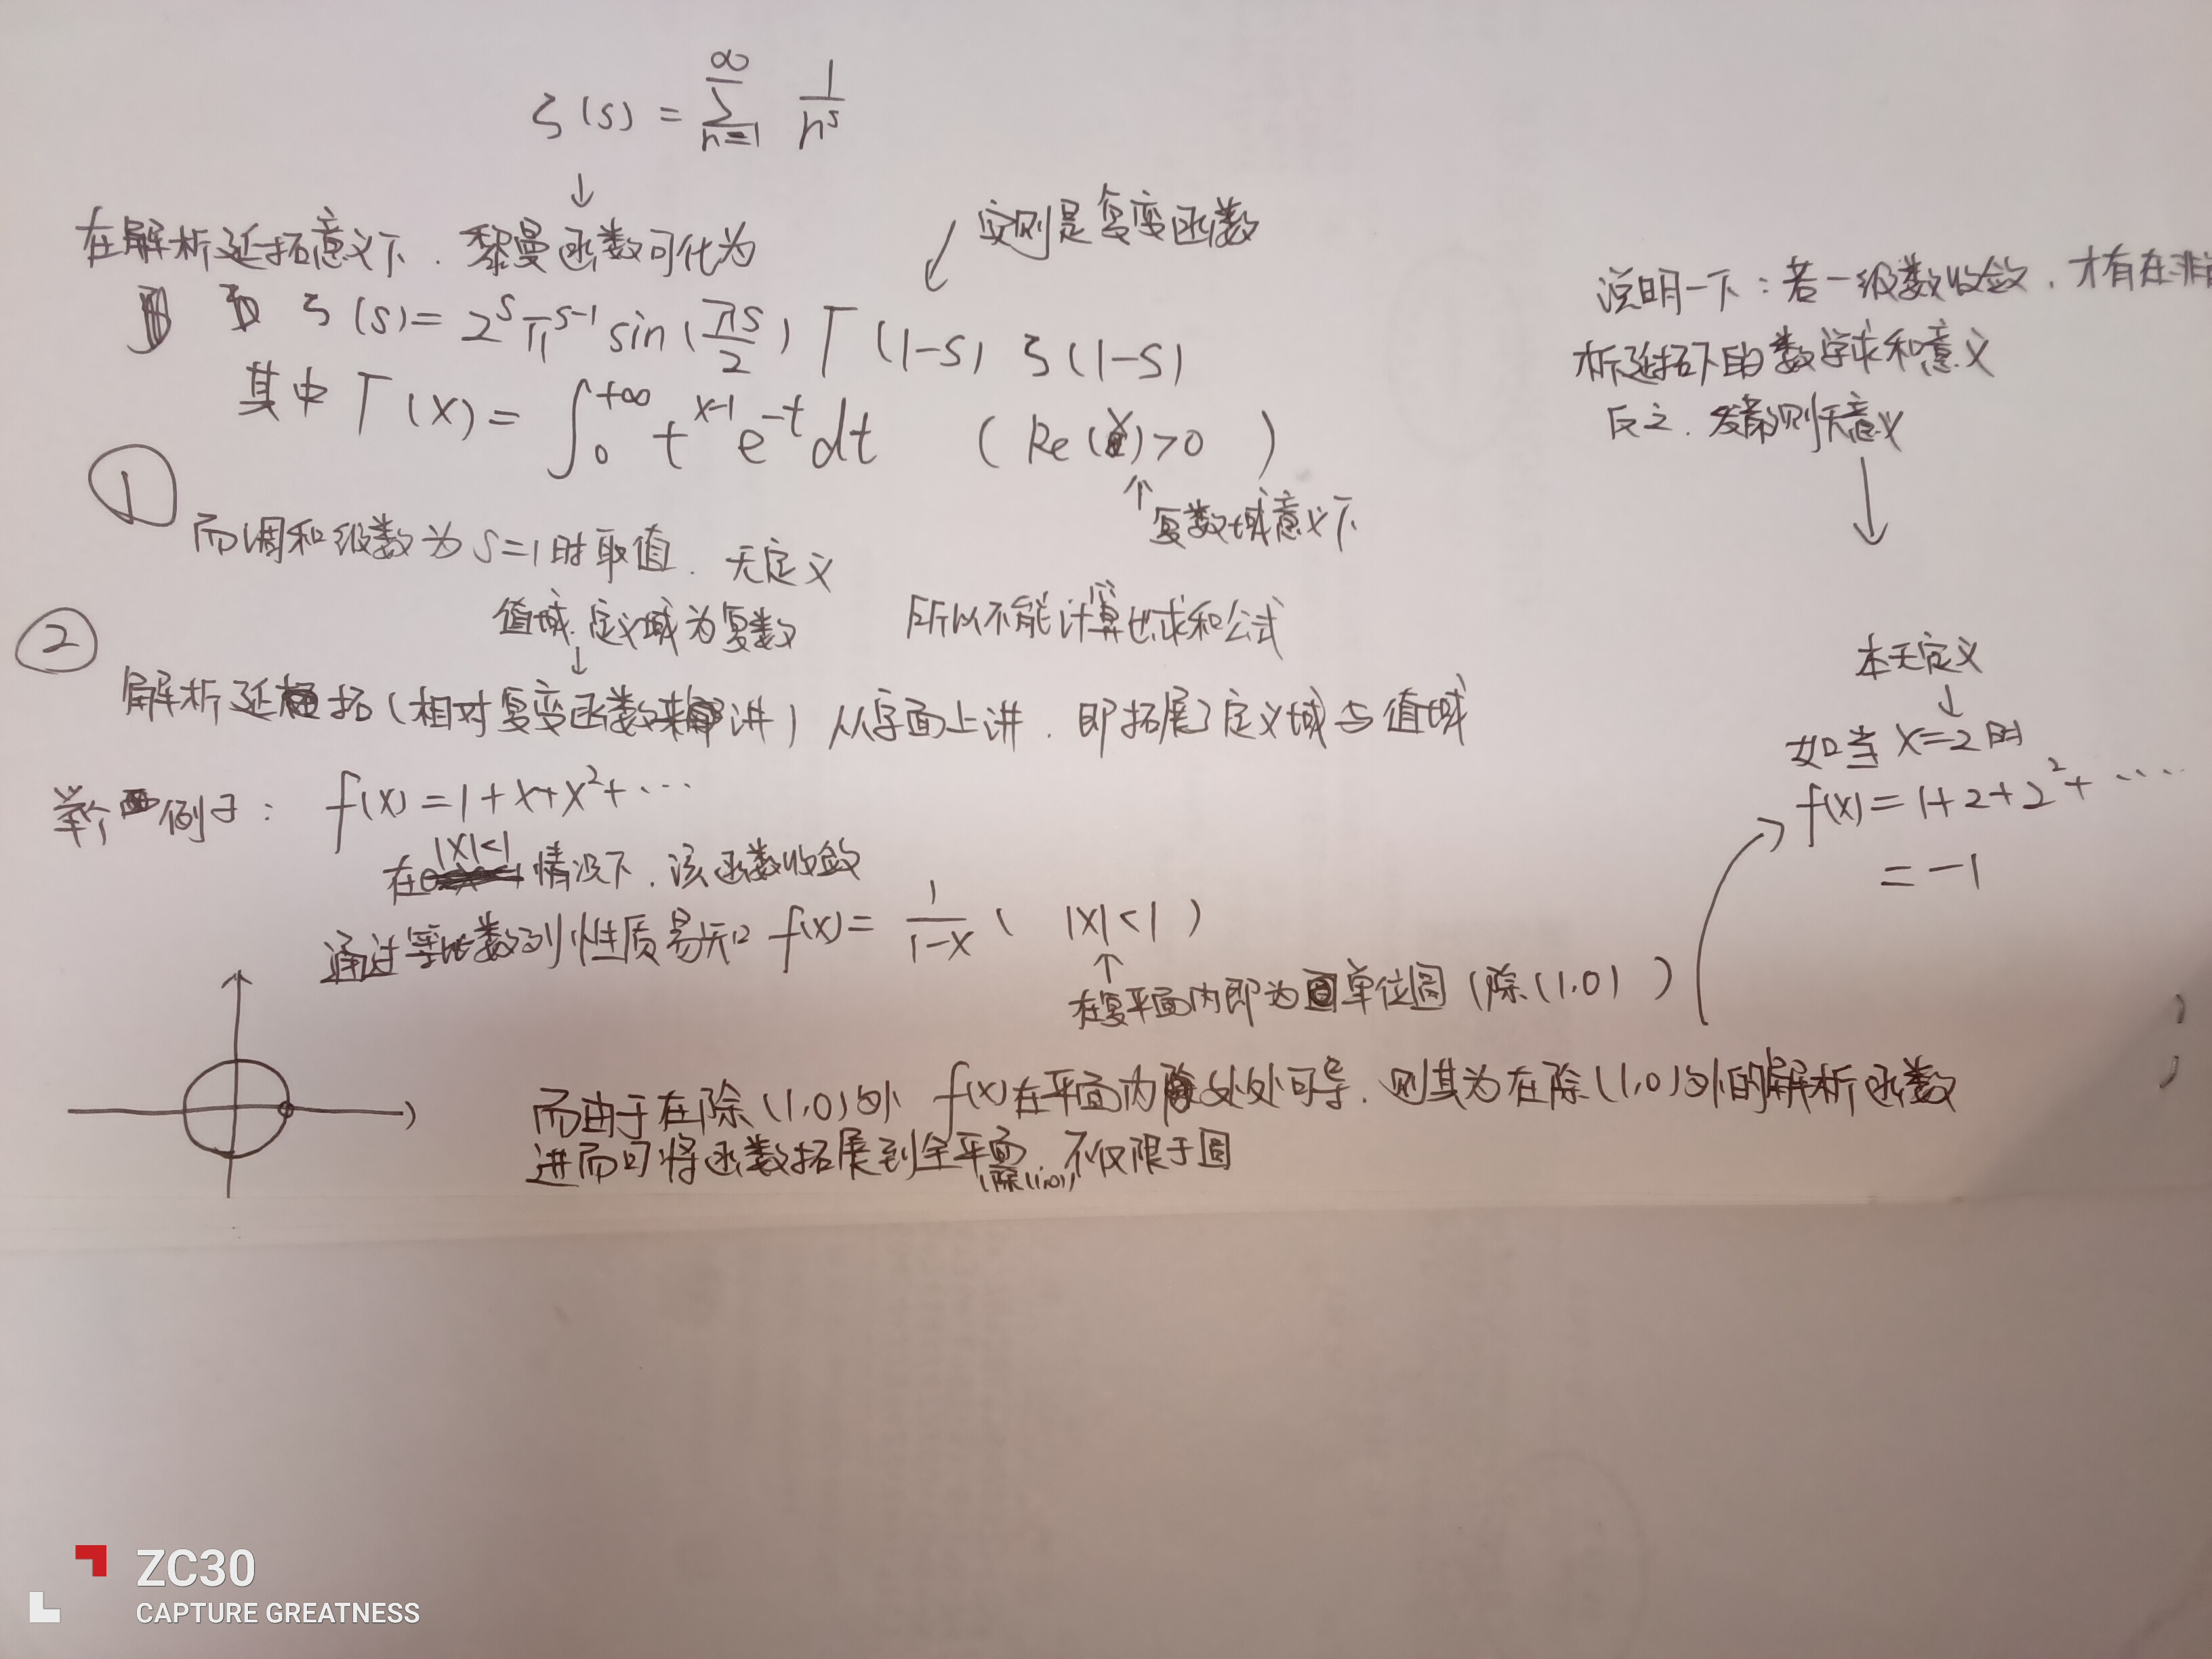 ζ(s) = ∑_{n=1}^{∞} 1/n^s
↓
在解析延拓意义下.黎曼函数可化为
↙ 实则是复变函数
ζ(s)=2^s π^{s-1} sin(πs/2) Γ(1-s) ζ(1-s)
其中 Γ(x)=∫_0^{+∞} t^{x-1} e^{-t} dt (Re(x)>0)
↑复数域意义下
① 而调和级数为 s=1时取值.无定义
所以不能计算出求和公式
值域.定义域为复数
↓
② 解析延拓(相对复变函数来讲)从字面上讲.即拓展了定义域与值域
举个例子: f(x)=1+x+x²+…
在|x|<1情况下.该函数收敛
通过等比数列性质易知 f(x)=1/(1-x) (|x|<1)
↑
在复平面内即为单位圆(除(1,0))
而由于在除(1,0)外 f(x)在平面内处处可导.则其为在除(1,0)外的解析函数
进而可将函数拓展到全平面(除(1,0)).不仅限于圆
说明一下:若一级数收敛.才有在非
析延拓下的数学求和意义
反之.发散则无意义
↓
本无定义
↓
如当 x=2时
f(x)=1+2+2²+….
=-1
ZC30
CAPTURE GREATNESS